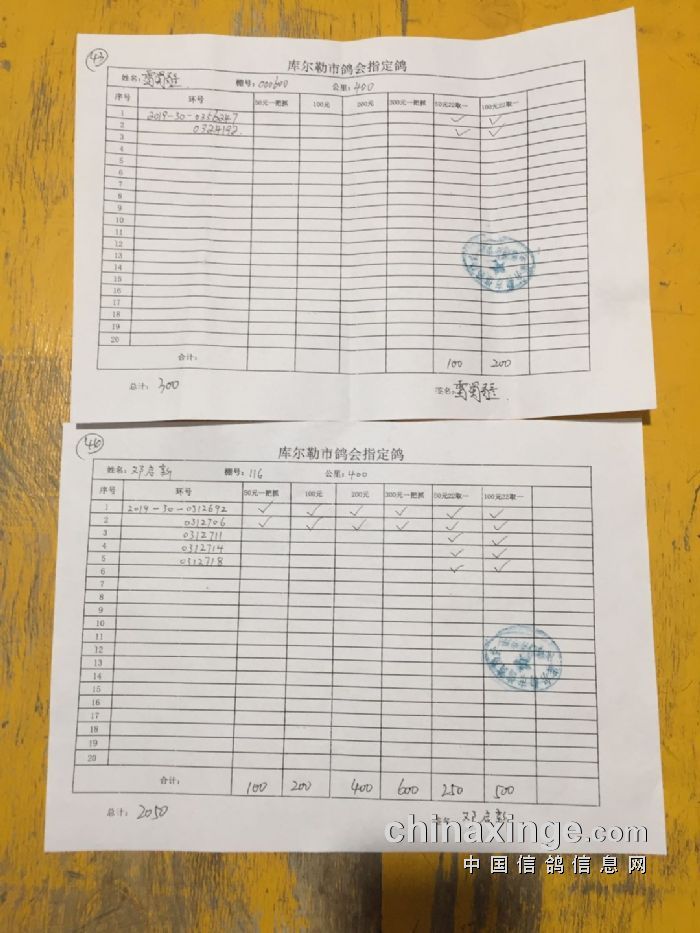 43
库尔勒市鸽会指定鸽
姓名: 棚号: 000600 公里: 400
序号 环号 50元一把抓 100元 200元 300元一把抓 50元22取一 100元22取一
1 2019-30-0356247 ✓ ✓
2 0324192 ✓ ✓
3
4
5
6
7
8
9
10
11
12
13
14
15
16
17
18
19
20
合计: 100 200
总计: 300 签名:
库尔勒市鸽会指定鸽
姓名: 邓启新 棚号: 116 公里: 400
序号 环号 50元一把抓 100元 200元 300元一把抓 50元22取一 100元22取一
1 2019-30-0312692 ✓ ✓ ✓ ✓ ✓ ✓
2 0312706 ✓ ✓ ✓ ✓ ✓ ✓
3 0312711 ✓ ✓
4 0312714 ✓ ✓
5 0312718 ✓ ✓
6
7
8
9
10
11
12
13
14
15
16
17
18
19
20
合计: 100 200 400 600 250 500
总计: 2050 签名: 邓启新
chinaxinge.com
中国信鸽信息网